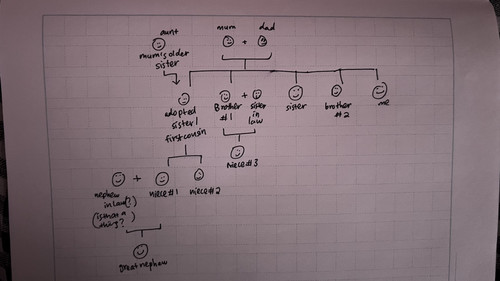 aunt
mum's older
sister
mum + dad
adopted
sister/
first cousin
Brother
#1
+
sister
in
law
sister
brother
#2
me
niece #3
nephew
in law(?)
(is that a
thing?)
+
niece #1
niece #2
Great nephew